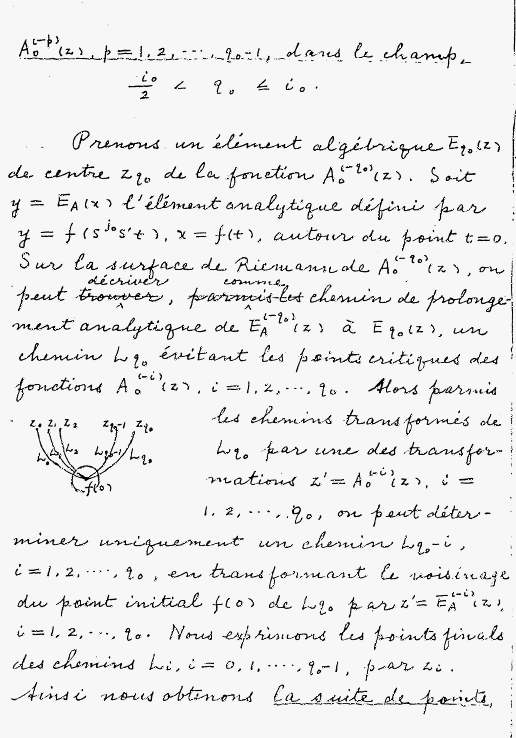 A₀⁽⁻ᵖ⁾(z), p = 1, 2, ..., q₀-1, dans le champ,
i₀/2 < q₀ ≤ i₀.
Prenons un élément algébrique E_q₀(z)
de centre z_q₀ de la fonction A₀⁽⁻q₀⁾(z). Soit
y = E_A(x) l'élément analytique défini par
y = f(s^j₀ s't), x = f(t), autour du point t=0.
Sur la surface de Riemann de A₀⁽⁻q₀⁾(z), on
décriver comme
peut trouver, parmis les chemin de prolonge-
ment analytique de E_A⁽⁻q₀⁾(z) à E_q₀(z), un
chemin L_q₀ évitant les points critiques des
fonctions A₀⁽⁻ⁱ⁾(z), i = 1, 2, ..., q₀. Alors parmis
les chemins transformés de
L_q₀ par une des transfor-
mations z' = A₀⁽⁻ⁱ⁾(z), i =
1, 2, ..., q₀, on peut déter-
z₀ z₁ z₂ z_q₀-1 z_q₀
L₀ L₁ L₂ L_q₀-1 L_q₀
f(0)
miner uniquement un chemin L_q₀-i,
i = 1, 2, ..., q₀, en transformant le voisinage
du point initial f(0) de L_q₀ par z' = E_A⁽⁻ⁱ⁾(z),
i = 1, 2, ..., q₀. Nous exprimons les points finals
des chemins Lᵢ, i = 0, 1, ..., q₀-1, par zᵢ.
Ainsi nous obtenons la suite de points,